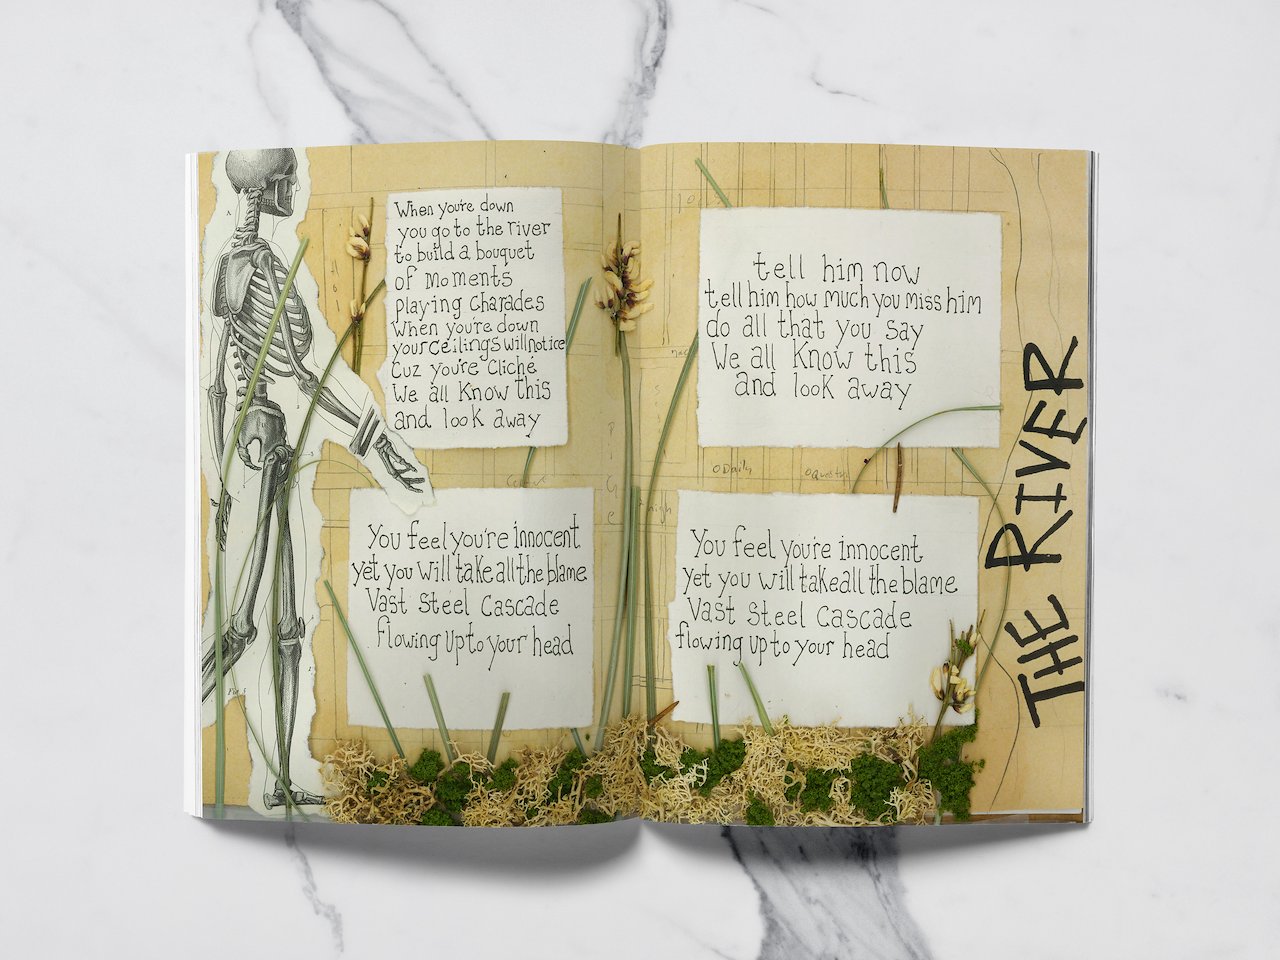 When you're down
you go to the river
to build a bouquet
of moments
playing charades
When you're down
your ceilings will notice
Cuz you're cliché
We all know this
and look away
You feel you're innocent
yet you will take all the blame
Vast Steel Cascade
flowing up to your head
tell him now
tell him how much you miss him
do all that you say
We all know this
and look away
You feel you're innocent
yet you will take all the blame
Vast Steel Cascade
flowing up to your head
THE RIVER
Daily
Fig.